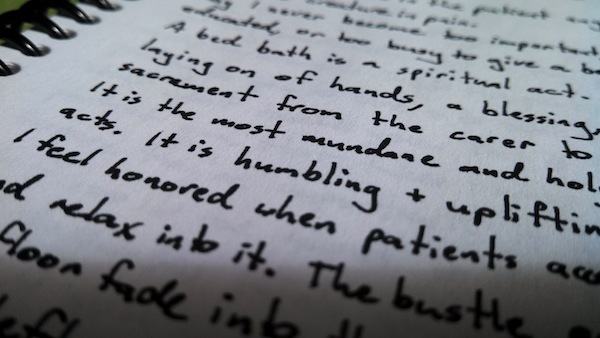 the patient
creature in pain.
I never become too important
educated, or too busy to give a
A bed bath is a spiritual act.
laying on of hands, a blessing,
sacrament from the carer to
It is the most mundane and
acts. It is humbling +
I feel honored when patients
relax into it. The bustle
floor fade into